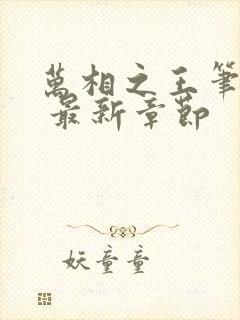 萬相之王筆
最新章節
妖童童